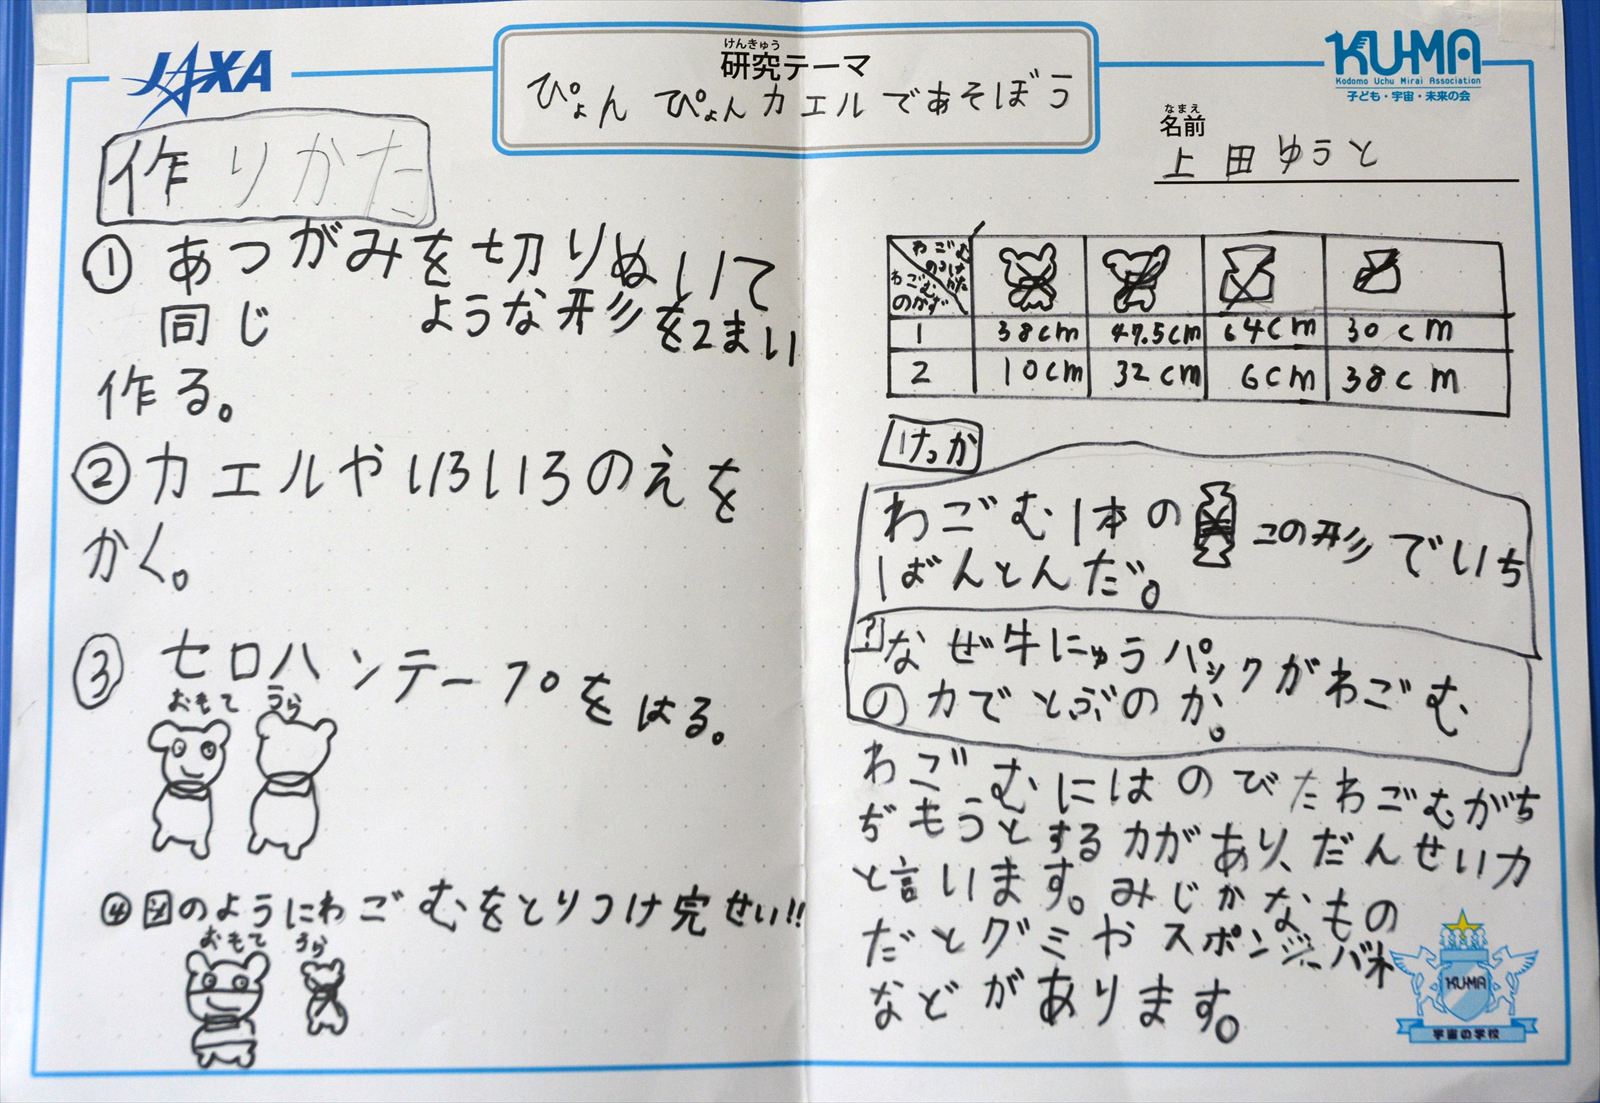 JAXA
けんきゅう
研究テーマ
ぴょんぴょんカエルであそぼう
KU-MA
Kodomo Uchu Mirai Association
子ども・宇宙・未来の会
なまえ
名前
上田ゆうと
作りかた
① あつがみを切りぬいて
同じ ような形を2まい
作る。
② カエルやいろいろのえを
かく。
③ セロハンテープをはる。
おもて うら
④ 図のようにわごむをとりつけ完せい!!
おもて うら
わごむ
わごむ
のかず
1 38cm 47.5cm 64cm 30cm
2 10cm 32cm 6cm 38cm
けっか
わごむ1本の この形でいち
ばんとんだ。
? なぜ牛にゅうパックがわごむ
の力でとぶのか。
わごむにはのびたわごむがち
ぢもうとする力があり、だんせい力
と言います。みじかなもの
だとグミやスポンジ、バネ
などがあります。
KUMA
宇宙の学校